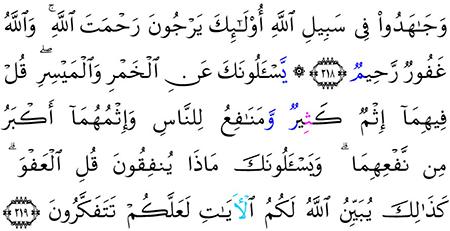 وَجَٰهَدُوا۟ فِى سَبِيلِ ٱللَّهِ أُو۟لَٰٓئِكَ يَرْجُونَ رَحْمَتَ ٱللَّهِ ۚ وَٱللَّهُ
غَفُورٌ رَّحِيمٌ ﴿٢١٨﴾ ۞ يَسْـَٔلُونَكَ عَنِ ٱلْخَمْرِ وَٱلْمَيْسِرِ ۖ قُلْ
فِيهِمَآ إِثْمٌ كَثِيرٌ وَمَنَٰفِعُ لِلنَّاسِ وَإِثْمُهُمَآ أَكْبَرُ
مِن نَّفْعِهِمَا ۗ وَيَسْـَٔلُونَكَ مَاذَا يُنفِقُونَ قُلِ ٱلْعَفْوَ ۗ
كَذَٰلِكَ يُبَيِّنُ ٱللَّهُ لَكُمُ ٱلْأَيَٰتِ لَعَلَّكُمْ تَتَفَكَّرُونَ ﴿٢١٩﴾